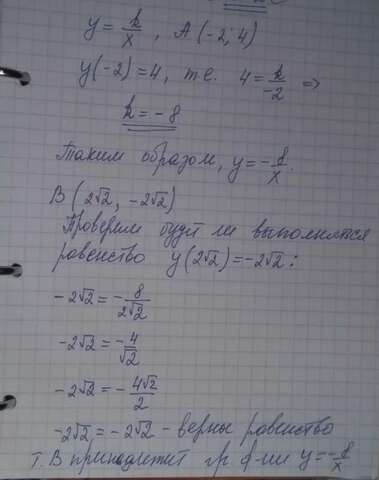 y = k/x, A(-2; 4)
y(-2) = 4, т.е. 4 = k/-2 =>
k = -8
Таким образом, y = -8/x.
B(2√2, -2√2)
Проверим будет ли выполняться
равенство y(2√2) = -2√2:
-2√2 = -8/2√2
-2√2 = -4/√2
-2√2 = -4√2/2
-2√2 = -2√2 - верны равенство
т. B принадлежит гр ф-ии y = -8/x